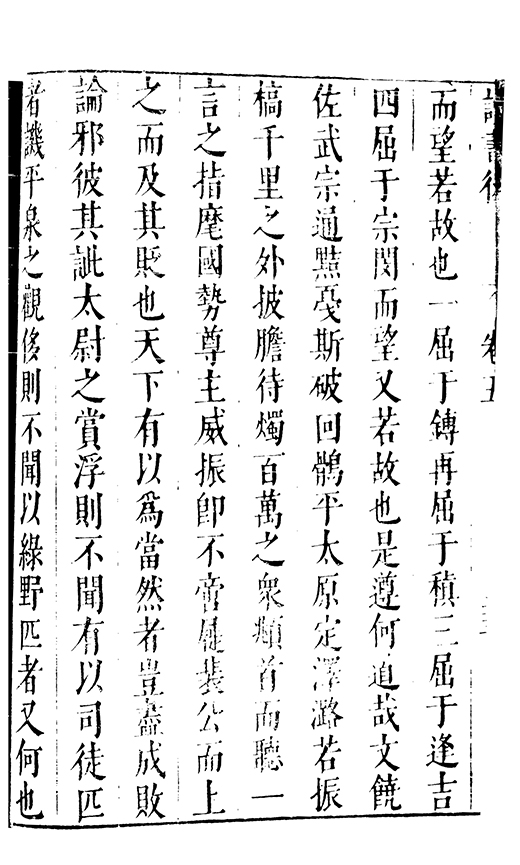 讀書後 卷五
而望若故也一屈于鎛再屈于稹三屈于逢吉
四屈于宗閔而望又若故也是遵何道哉文饒
佐武宗通黠戛斯破回鶻平太原定澤潞若振
槁千里之外披膽待燭百萬之衆頫首而聽一
言之指麾國勢尊主威振卽不啻屣裴公而上
之而及其貶也天下有以爲當然者豈盡成敗
論邪彼其訿太尉之賞浮則不聞有以司徒匹
者譏平泉之觀侈則不聞以綠野匹者又何也